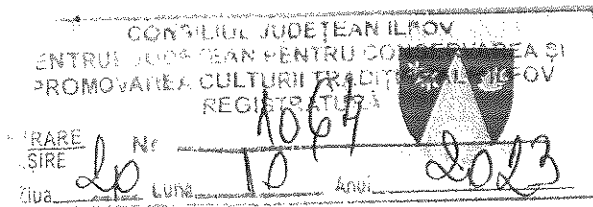 CONSILIUL JUDEȚEAN ILFOV
ENTRUL JUDEȚEAN PENTRU CONSERVAREA ȘI
PROMOVAREA CULTURII TRADIȚIONALE ILFOV
REGISTRATURA
RARE Nr. 1064
ȘIRE
Ziua 20 Luna 10 Anul 2023